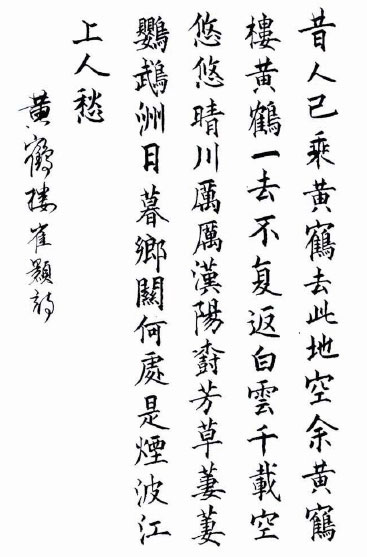 昔人已乘黃鶴去此地空余黃鶴
樓黃鶴一去不复返白雲千載空
悠悠晴川厲厲漢陽樹芳草萋萋
鸚鵡洲日暮鄉關何處是煙波江
上人愁
黃鶴樓崔顥詩